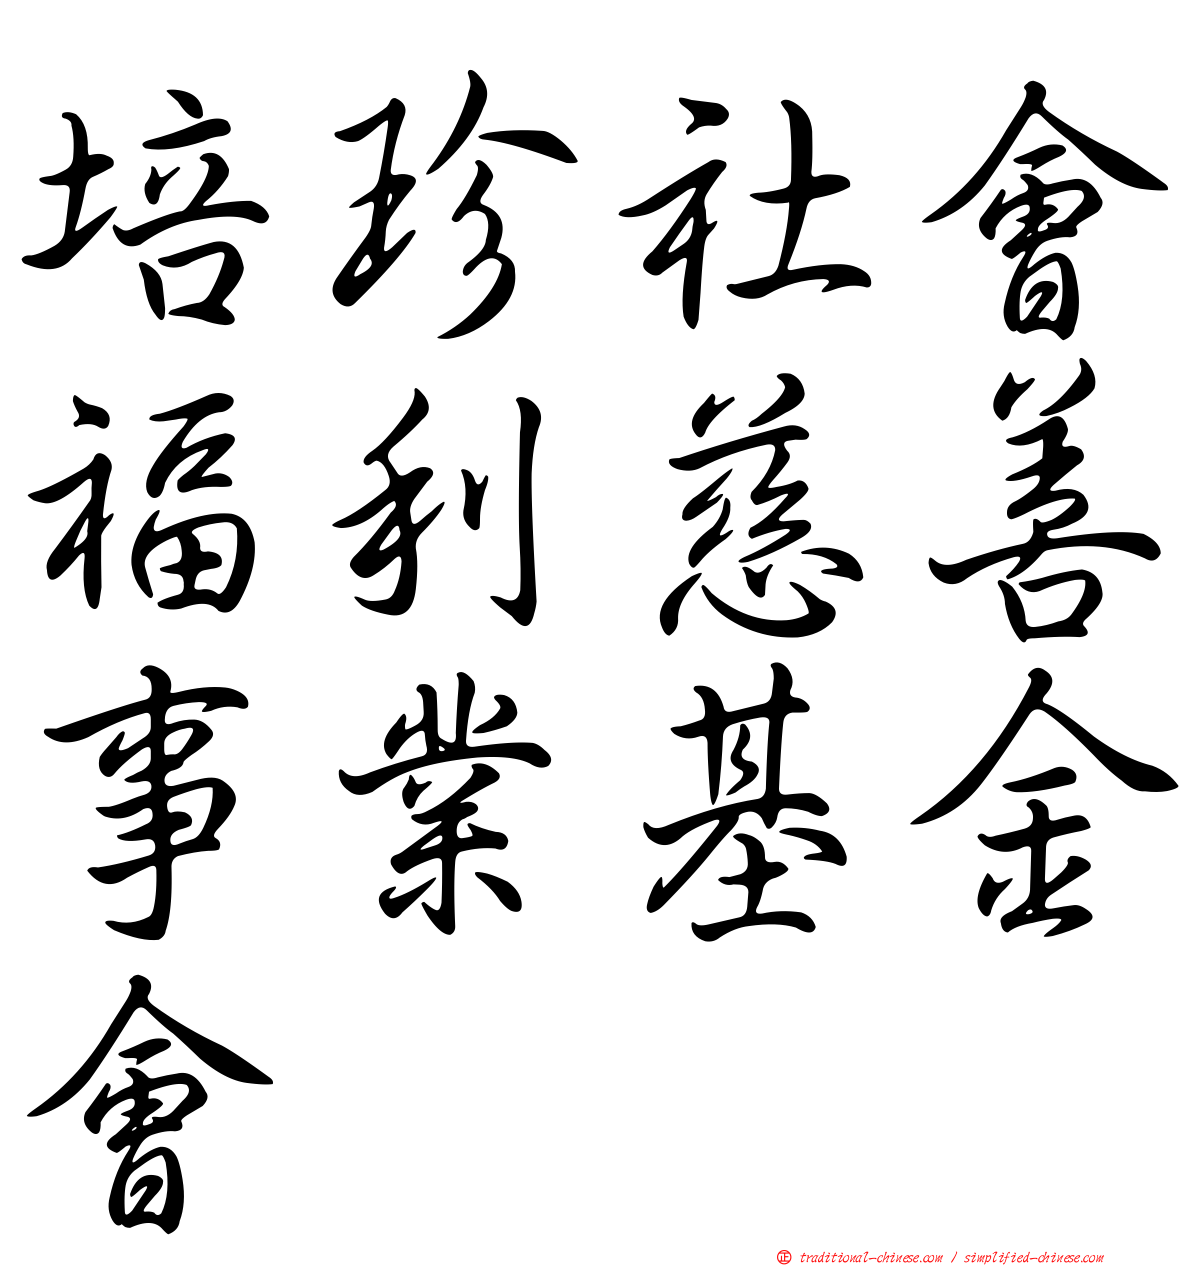 培珍社會
福利慈善
事業基金
會
正 traditional-chinese.com / simplified-chinese.com